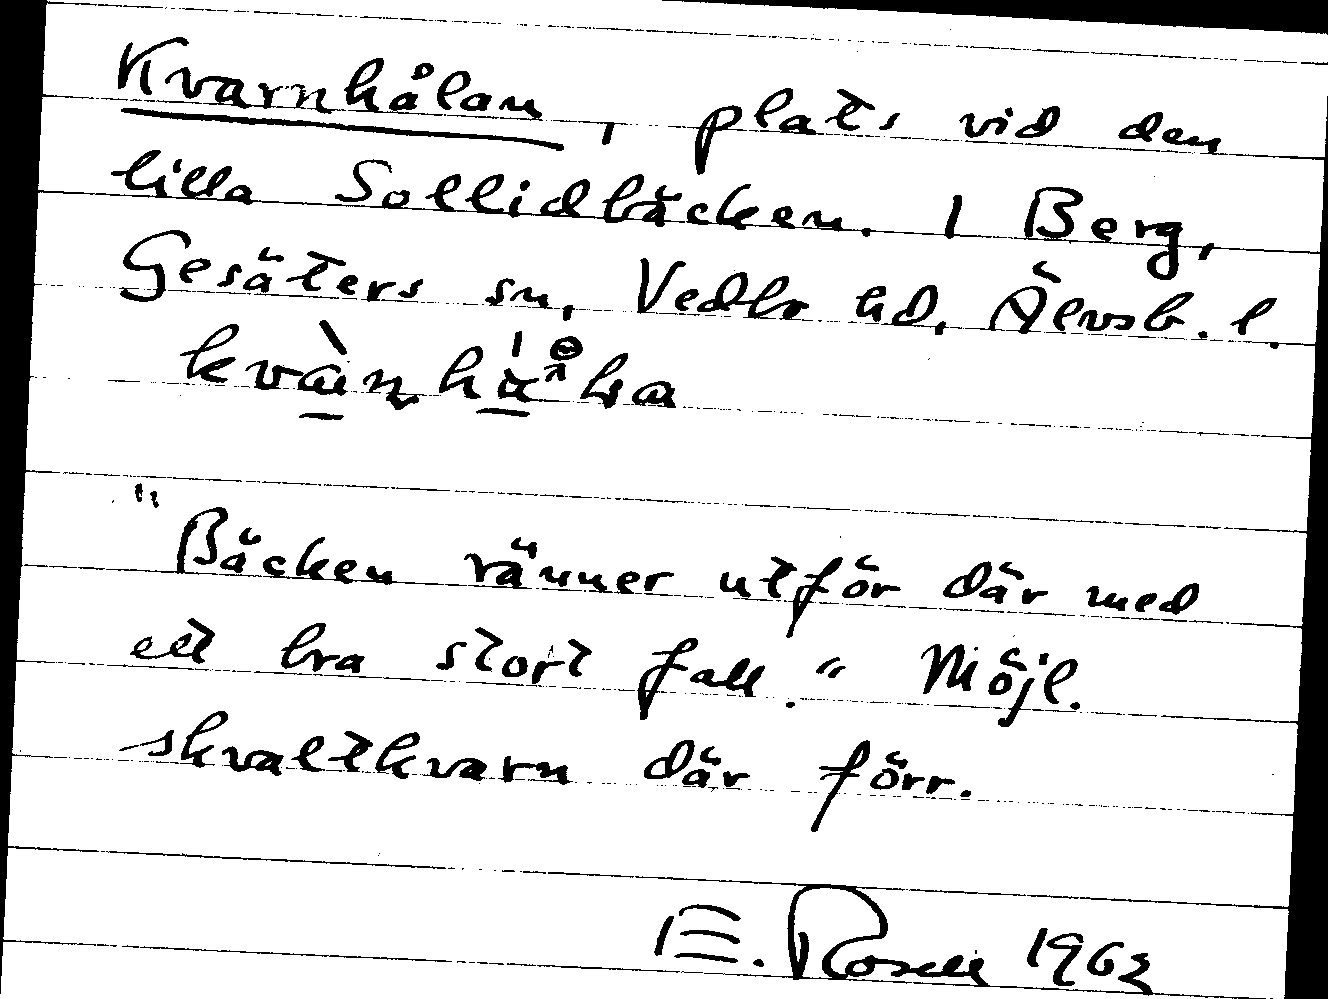 Kvarnhålan, plats vid den
lilla Sollidbäcken. I Berg,
Gesäters sn, Vedbo hd, Älvsb. l.
"Bäcken ränner utför där med
ett bra stort fall." Möjl.
skvaltkvarn där förr.
E. Rosell 1962